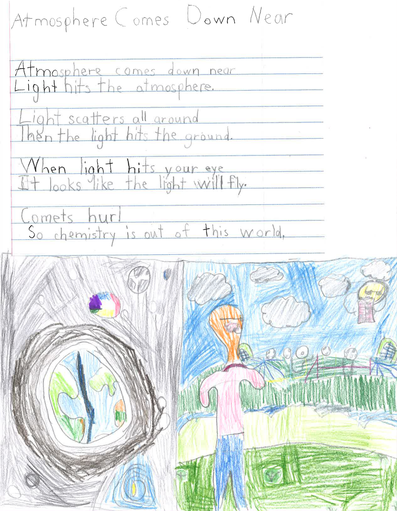 Atmosphere Comes Down Near
Atmosphere comes down near
Light hits the atmosphere.
Light scatters all around
Then the light hits the ground.
When light hits your eye
It looks like the light will fly.
Comets hurl
So chemistry is out of this world.